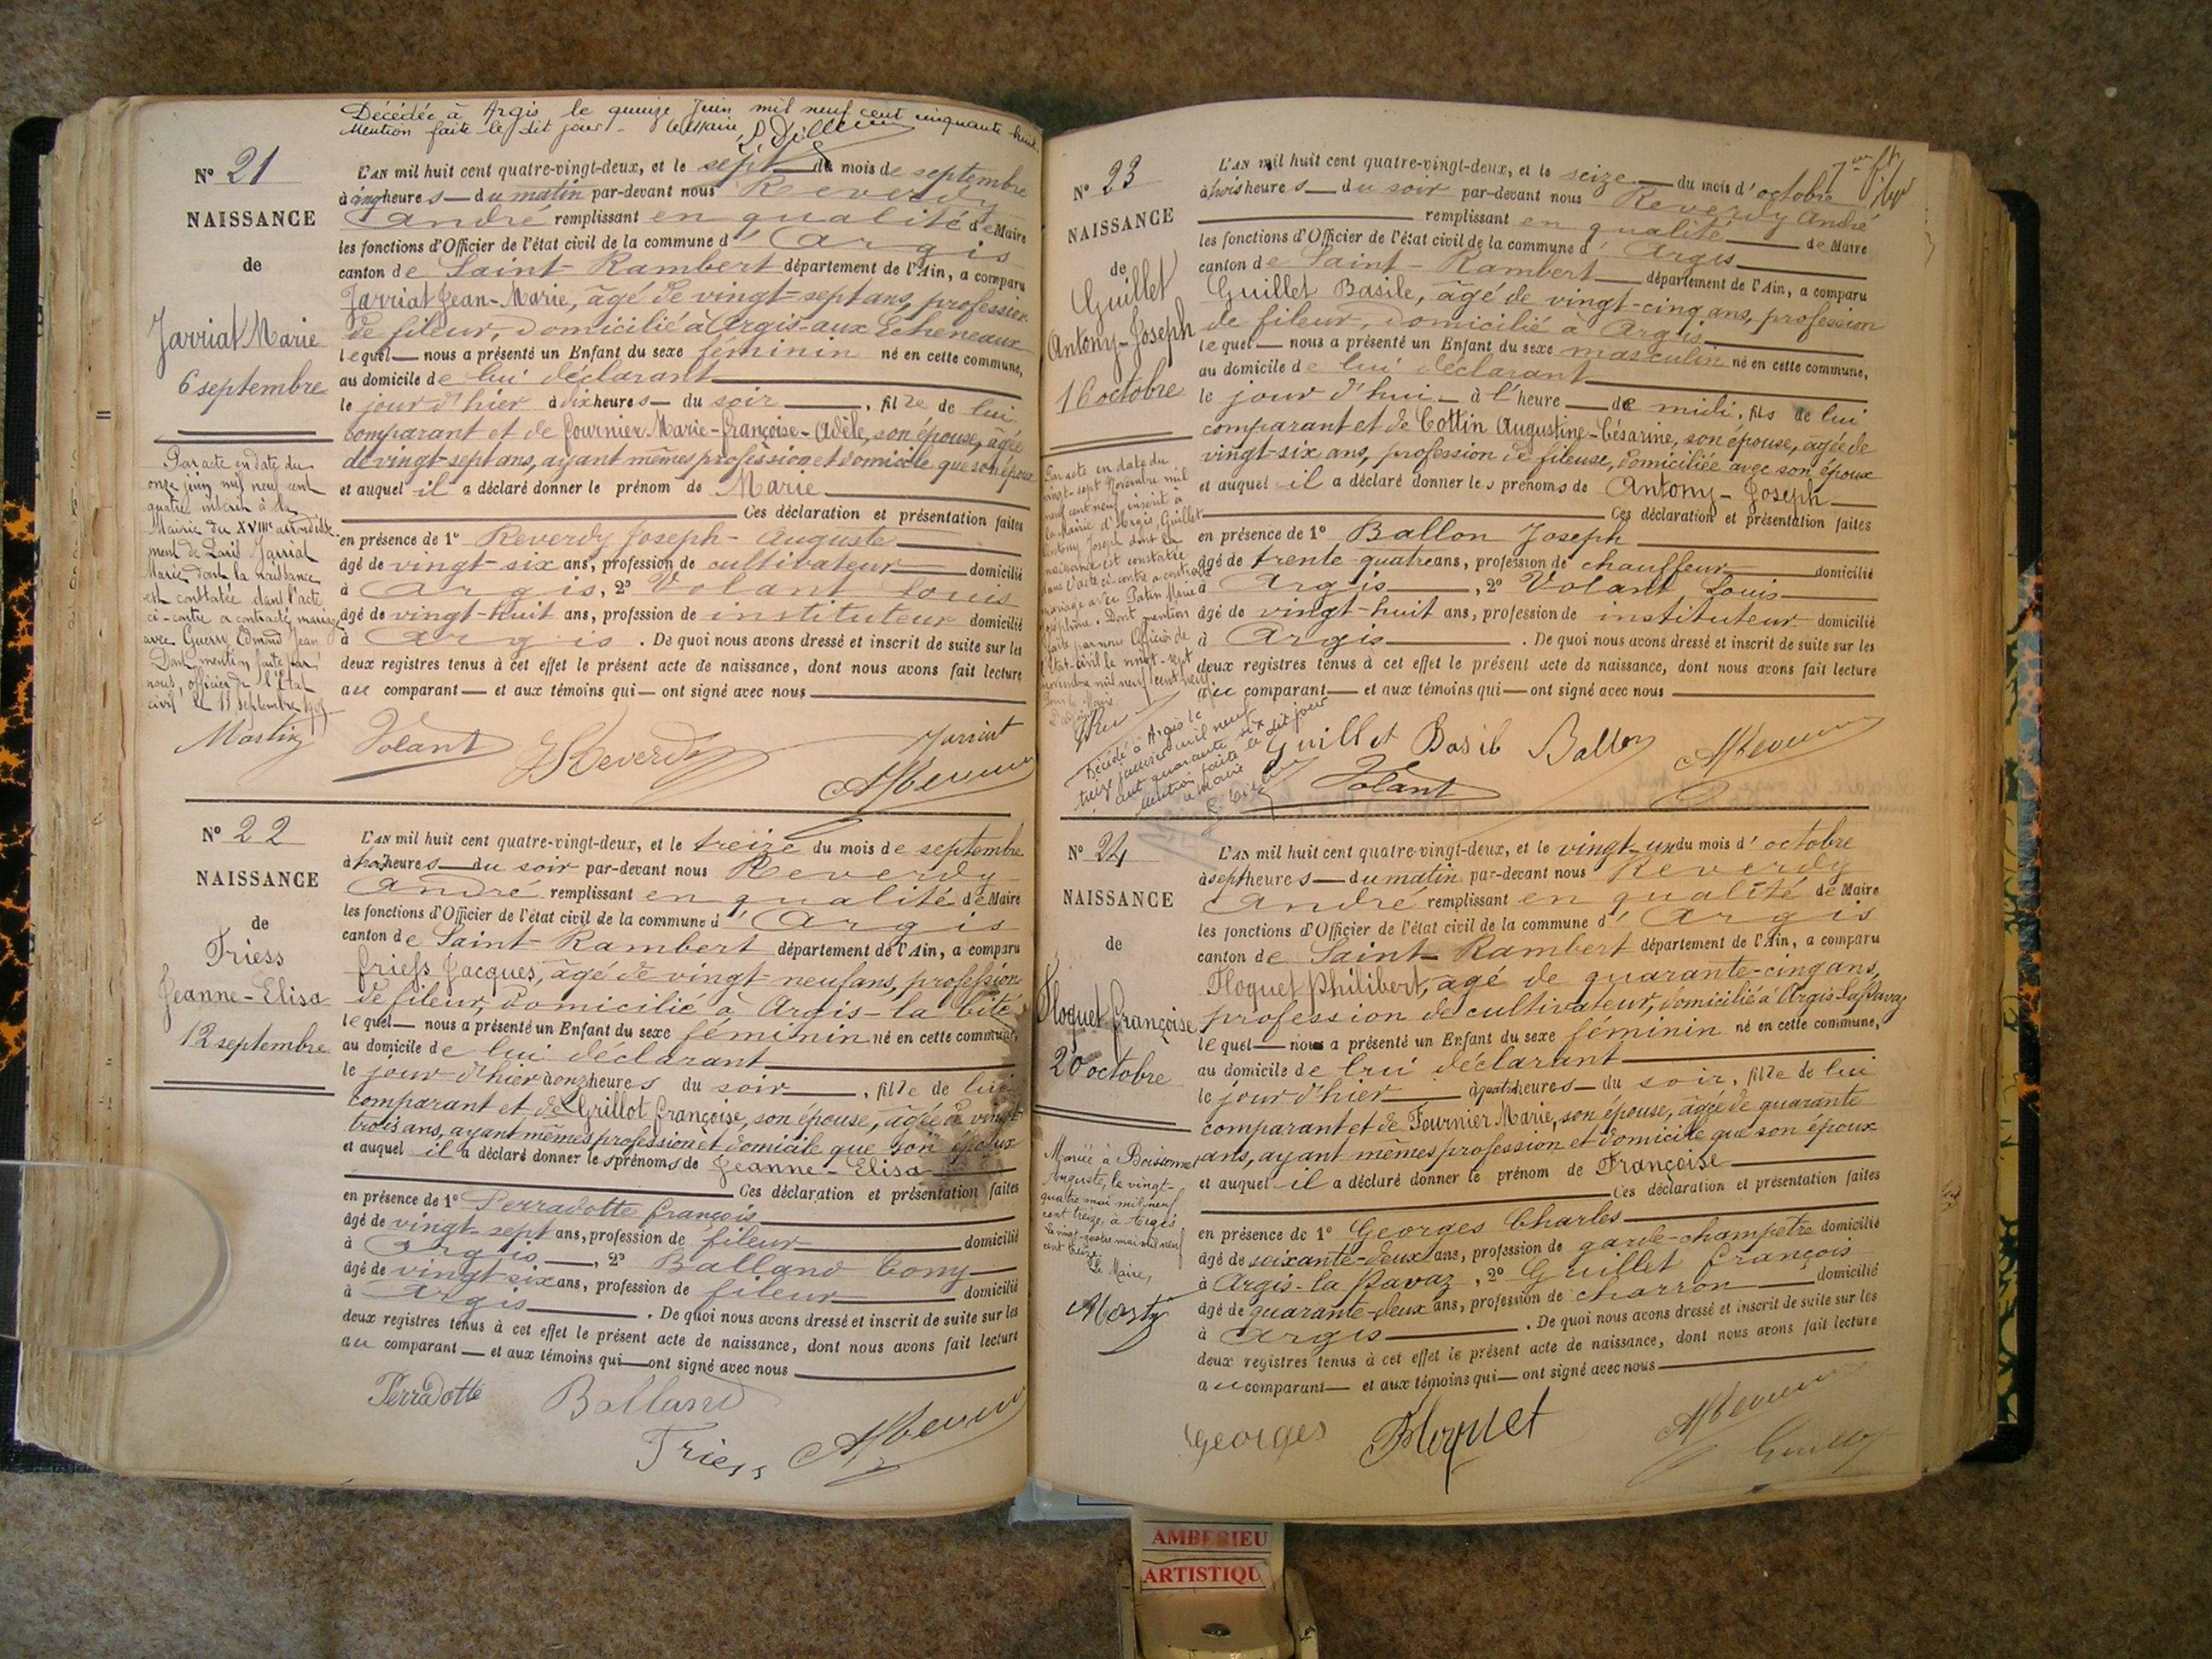 Décédée à Argis le quinze Juin mil neuf cent cinquante huit.
Mention faite le dit jour - Le Maire,
N° 21
NAISSANCE
de
Jarriat Marie
6 septembre
Par acte en date du
onze juin mil neuf cent
quatre inscrit à la
Mairie du XVIIIe arrondisse
ment de Paris Jarriat
Marie dont la naissance
est constatée dans l'acte
ci-contre a contracté mariage
avec Guerry Edmond Jean
Dont mention faite par
nous, officier de l'Etat
civil le 11 septembre
Martin
L'AN mil huit cent quatre-vingt-deux, et le sept du mois de septembre
à cinq heures du matin par-devant nous Reverdy
André remplissant en qualité de Maire
les fonctions d'Officier de l'état civil de la commune d'Argis
canton de Saint-Rambert département de l'Ain, a comparu
Jarriat Jean-Marie, âgé de vingt-sept ans, profession
de fileur, domicilié à Argis-aux Echeneaux
lequel nous a présenté un Enfant du sexe féminin né en cette commune,
au domicile de lui déclarant
le jour d'hier à dix heures du soir, fille de lui
comparant et de Fournier Marie-Françoise-Adèle, son épouse, âgée
de vingt-sept ans, ayant mêmes profession et domicile que son époux
et auquel il a déclaré donner le prénom de Marie
Ces déclaration et présentation faites
en présence de 1° Reverdy Joseph-Auguste
âgé de vingt-six ans, profession de cultivateur domicilié
à Argis, 2° Volant Louis
âgé de vingt-huit ans, profession de instituteur domicilié
à Argis. De quoi nous avons dressé et inscrit de suite sur les
deux registres tenus à cet effet le présent acte de naissance, dont nous avons fait lecture
au comparant et aux témoins qui ont signé avec nous
Volant JReverdy Jarriat
AReverdy
N° 22
NAISSANCE
de
Triess
Jeanne-Elisa
12 septembre
L'AN mil huit cent quatre-vingt-deux, et le treize du mois de septembre
à trois heures du soir par-devant nous Reverdy
André remplissant en qualité de Maire
les fonctions d'Officier de l'état civil de la commune d'Argis
canton de Saint-Rambert département de l'Ain, a comparu
Triess Jacques, âgé de vingt-neuf ans, profession
de fileur, domicilié à Argis-la Cité
lequel nous a présenté un Enfant du sexe féminin né en cette commune,
au domicile de lui déclarant
le jour d'hier à onze heures du soir, fille de lui
comparant et de Grillot Françoise, son épouse, âgée de vingt-
trois ans, ayant mêmes profession et domicile que son époux
et auquel il a déclaré donner les prénoms de Jeanne-Elisa
Ces déclaration et présentation faites
en présence de 1° Perradotte François
âgé de vingt-sept ans, profession de fileur domicilié
à Argis, 2° Balland Tony
âgé de vingt-six ans, profession de fileur domicilié
à Argis. De quoi nous avons dressé et inscrit de suite sur les
deux registres tenus à cet effet le présent acte de naissance, dont nous avons fait lecture
au comparant et aux témoins qui ont signé avec nous
Perradotte Balland
Triess AReverdy
N° 23
NAISSANCE
de
Guillet
Antony-Joseph
16 octobre
Par acte en date du
vingt-sept Novembre mil
neuf cent neuf inscrit à
la Mairie d'Argis, Guillet
Antony Joseph dont la
naissance est constatée
dans l'acte ci-contre a contracté
mariage avec Patin Marie
Joséphine. Dont mention
faite par nous Officier de
l'Etat-civil le vingt-sept
novembre mil neuf cent neuf
Pour le Maire
Décédé à Argis le
treize janvier mil neuf
cent quarante six
mention faite le dit jour
Le Maire
L'AN mil huit cent quatre-vingt-deux, et le seize du mois d'octobre
à trois heures du soir par-devant nous Reverdy André
remplissant en qualité de Maire
les fonctions d'Officier de l'état civil de la commune d'Argis
canton de Saint-Rambert département de l'Ain, a comparu
Guillet Basile, âgé de vingt-cinq ans, profession
de fileur, domicilié à Argis
lequel nous a présenté un Enfant du sexe masculin né en cette commune,
au domicile de lui déclarant
le jour d'hui à l'heure de midi, fils de lui
comparant et de Cottin Augustine-Césarine, son épouse, âgée de
vingt-six ans, profession de fileuse, domiciliée avec son époux
et auquel il a déclaré donner les prénoms de Antony-Joseph
Ces déclaration et présentation faites
en présence de 1° Ballon Joseph
âgé de trente-quatre ans, profession de chauffeur domicilié
à Argis, 2° Volant Louis
âgé de vingt-huit ans, profession de instituteur domicilié
à Argis. De quoi nous avons dressé et inscrit de suite sur les
deux registres tenus à cet effet le présent acte de naissance, dont nous avons fait lecture
au comparant et aux témoins qui ont signé avec nous
Guillet Basile Ballon AReverdy
Volant
N° 24
NAISSANCE
de
Floquet Françoise
20 octobre
Mariée à
Auguste, le vingt-
quatre mai mil neuf
cent treize, à Argis
le vingt-quatre mai mil neuf
cent treize
Le Maire,
L'AN mil huit cent quatre-vingt-deux, et le vingt-un du mois d'octobre
à sept heures du matin par-devant nous Reverdy
André remplissant en qualité de Maire
les fonctions d'Officier de l'état civil de la commune d'Argis
canton de Saint-Rambert département de l'Ain, a comparu
Floquet Philibert, âgé de quarante-cinq ans,
profession de cultivateur, domicilié à Argis-
lequel nous a présenté un Enfant du sexe féminin né en cette commune,
au domicile de lui déclarant
le jour d'hier à quatre heures du soir, fille de lui
comparant et de Fournier Marie, son épouse, âgée de quarante
ans, ayant mêmes profession et domicile que son époux
et auquel il a déclaré donner le prénom de Françoise
Ces déclaration et présentation faites
en présence de 1° Georges Charles
âgé de soixante-deux ans, profession de garde-champêtre domicilié
à Argis-la Pavaz, 2° Guillet François
âgé de quarante-deux ans, profession de charron domicilié
à Argis. De quoi nous avons dressé et inscrit de suite sur les
deux registres tenus à cet effet le présent acte de naissance, dont nous avons fait lecture
au comparant et aux témoins qui ont signé avec nous
Georges Floquet AReverdy
Guillet
AMBERIEU
ARTISTIQU